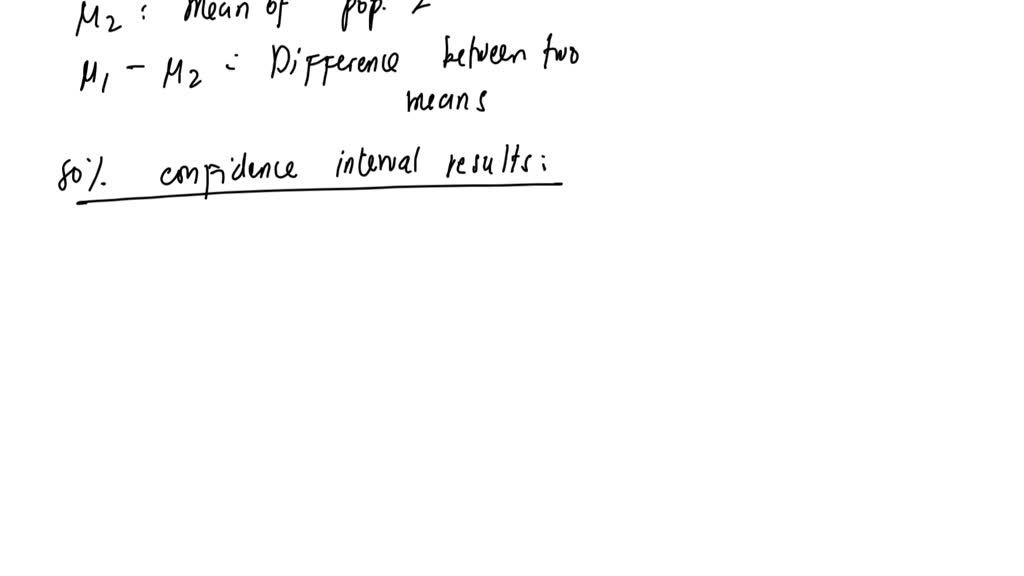 μ2 : Mean of pop. 2
μ1 - μ2 : Difference between two
means
80% confidence interval results: